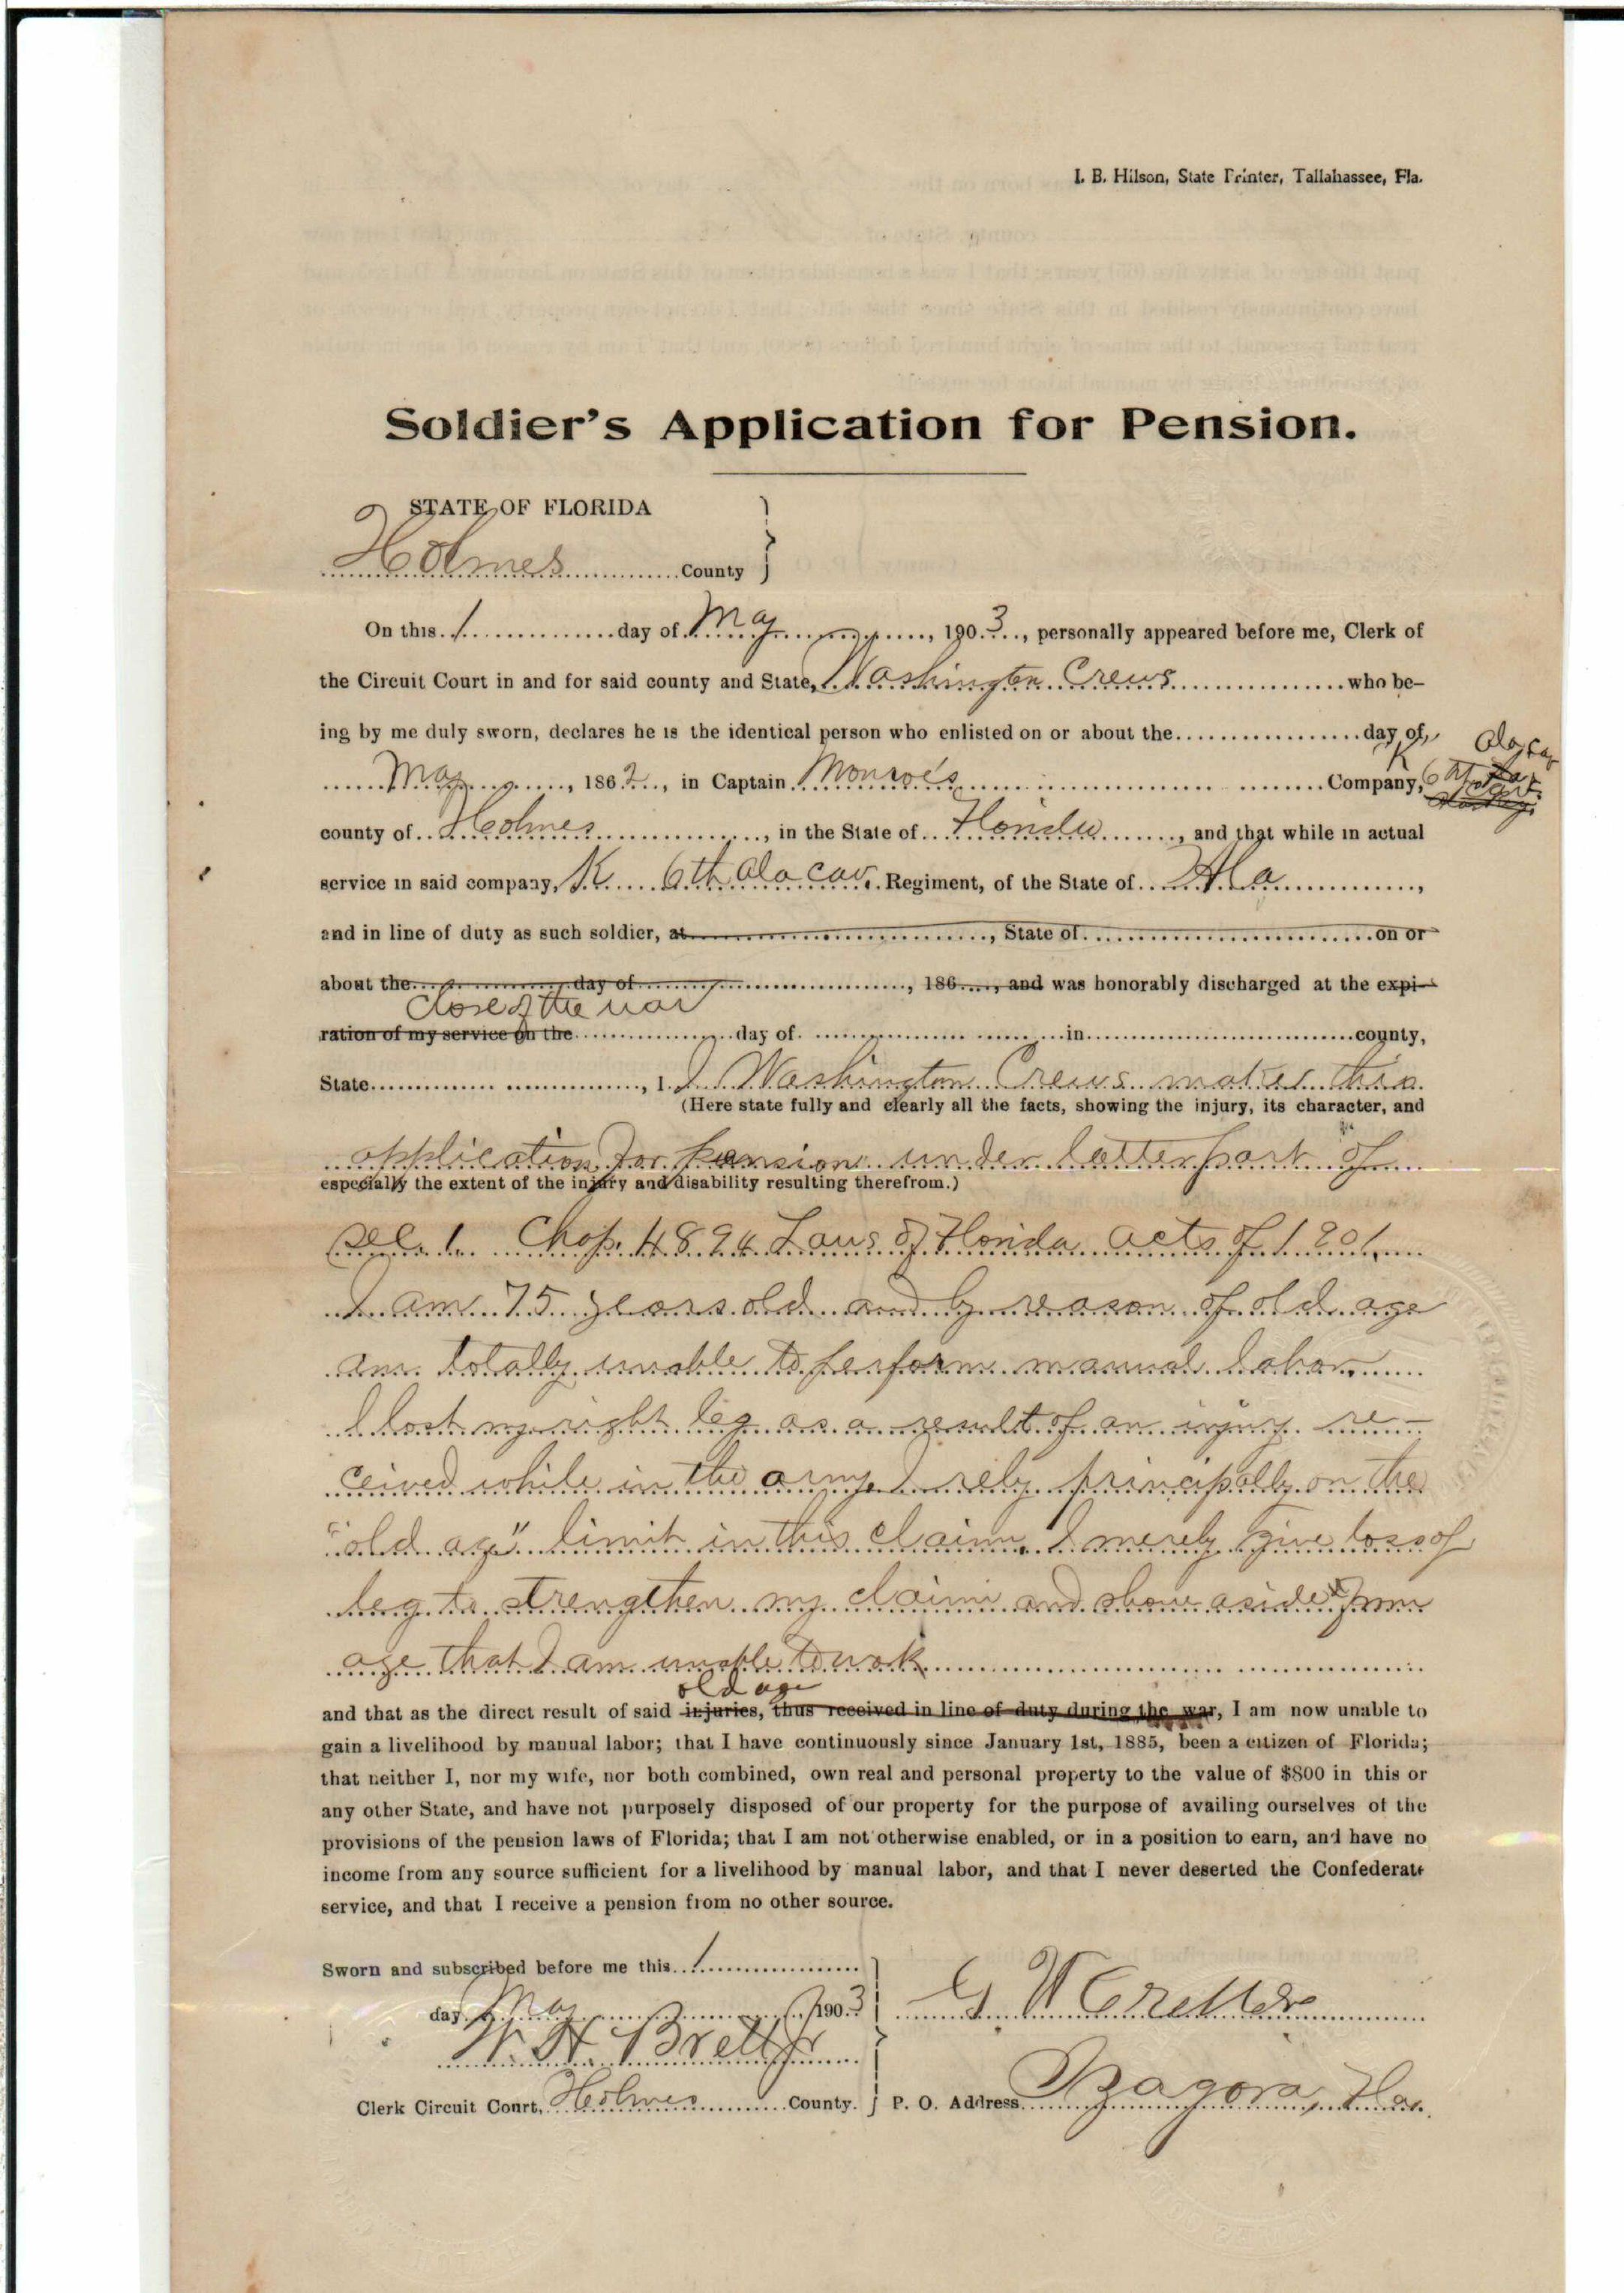 I. B. Hilson, State Printer, Tallahassee, Fla.
Soldier's Application for Pension.
STATE OF FLORIDA
Holmes County
On this 1 day of May, 1903, personally appeared before me, Clerk of
the Circuit Court in and for said county and State, Washington Crews who be-
ing by me duly sworn, declares he is the identical person who enlisted on or about the day of
May, 1862, in Captain Monroe's Company, K 6th Ala Cav
county of Holmes, in the State of Florida, and that while in actual
service in said company, K 6th Ala Cav. Regiment, of the State of Ala,
and in line of duty as such soldier, at, State of on or
about the day of, 186, and was honorably discharged at the expi-
close of the war
ration of my service on the day of in county,
State, I I Washington Crews makes this
(Here state fully and clearly all the facts, showing the injury, its character, and
application for pension under latter part of
especially the extent of the injury and disability resulting therefrom.)
Sec. 1. Chap. 4894 Laws of Florida acts of 1901.
I am 75 years old and by reason of old age
am totally unable to perform manual labor.
I lost my right leg as a result of an injury re-
ceived while in the army. I rely principally on the
"old age" limit in this claim. I merely give loss of
leg to strengthen my claim and show aside from
age that I am unable to work
old age
and that as the direct result of said injuries, thus received in line of duty during the war, I am now unable to
gain a livelihood by manual labor; that I have continuously since January 1st, 1885, been a citizen of Florida;
that neither I, nor my wife, nor both combined, own real and personal property to the value of $800 in this or
any other State, and have not purposely disposed of our property for the purpose of availing ourselves of the
provisions of the pension laws of Florida; that I am not otherwise enabled, or in a position to earn, and have no
income from any source sufficient for a livelihood by manual labor, and that I never deserted the Confederate
service, and that I receive a pension from no other source.
Sworn and subscribed before me this 1
day May 1903 G W
W. H. Brett Jr
Clerk Circuit Court, Holmes County. P. O. Address Fla.